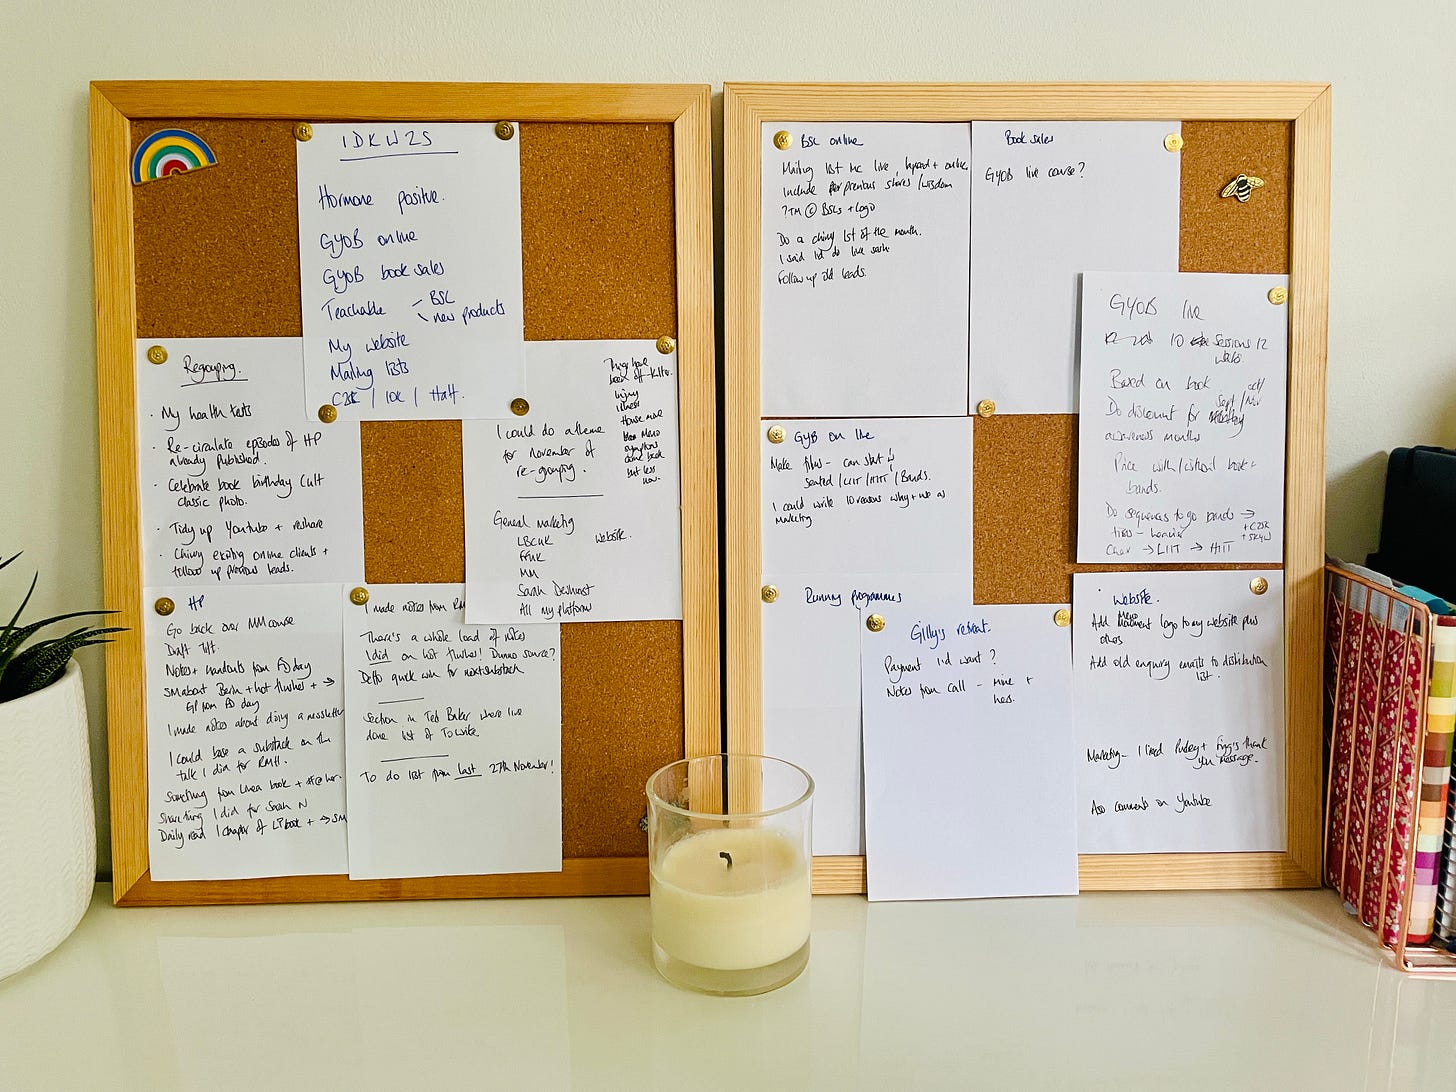 IDKW2S
Hormone positive.
GYOB online
GYOB book sales
Teachable - BSC
new products
My website
Mailing lists
C25K / 10K / Half.
Regrouping.
· My health tests
· Re-circulate episodes of HP
already published.
· Celebrate book birthday Cult
classic photo.
· Tidy up Youtube + reshare
· Chivvy existing online clients +
follow up previous leads.
I could do a theme
for November of
re-grouping.
General marketing
LBCUK website.
FFUK
MM
Sarah Devonport
All my platform
Things have
been off-kilter.
Injury
illness
House move
Meno
symptoms
came back
but less
now.
HP
Go back over MM course
Draft Tilt.
Notes + handouts from FD day
SM about Berlin + hot flushes + →
GP from FD day
I made notes about doing a newsletter
I could base a substack on the
talk I did for RMH.
Something from Unea book + her.
Share thing I did for Sarah N
Daily read 1 chapter of book + → SM
I made notes from RM
There's a whole load of notes
I did on hot flushes! Dunno source?
Defo quick win for next substack
Section in Ted Baker where I've
done list of To write
To do list from last 27th November!
BSC online
Mailing list inc live, lapsed + online
Include for previous shares / wisdom
?TM © BSCs + logo
Do a chivvy 1st of the month.
I said I'd do live sesh.
Follow up old leads.
Book sales
GYOB live course?
GYOB live
10 sessions 12
weeks.
Based on book
Do discount for Sept / oct / Nov
awareness months
Price with / without book +
bands.
Do sequences to go bands →
tins - heavier + C25K
Chair → LIIT → HIIT + 5K4W
GYB on line
Make films - can start
seated / LIIT / HIIT / Bands.
I could write 10 reasons why + use as
marketing
Running programmes
Gilly's retreat.
Payment I'd want?
Notes from call - mine +
hers.
Website.
Add Meno Movement logo to my website plus
others
Add old enquiry emails to distribution
list.
Marketing - I liked Pudsey + Frigg's thank
you message.
Also comments on Youtube